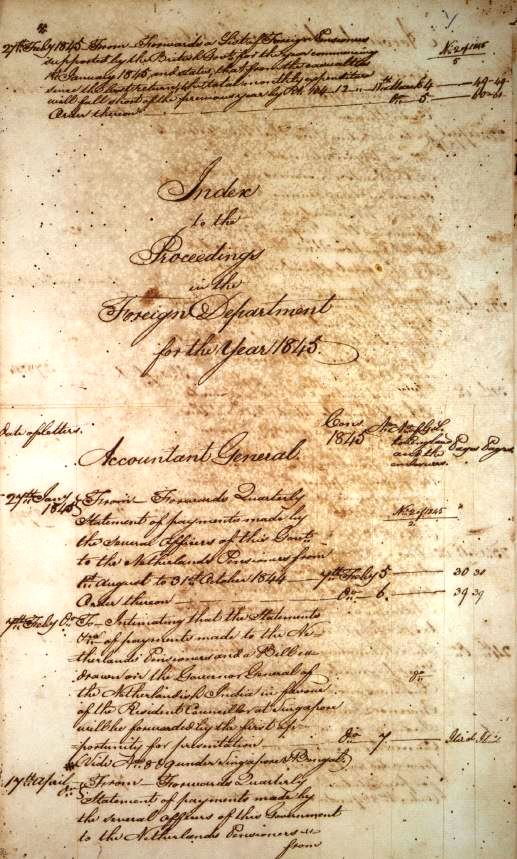 27th Feby 1845 From - Forwards a List of Foreign Pensioners
supported by the British Govt. for the year commencing
1st January 1845, and states, that from the casualties
since the last return, the total monthly expenditure
will fall short of the previous year by 12 7th March 4
Order thereon Do 5
No. 24/1845
5
Index
to the
Proceedings
in the
Foreign Department
for the Year 1845.
Date of letters.
Cons.
1845
to England
and the
answers.
Pages Pages
Accountant General.
27th Jany
1845
From - Forwards Quarterly
Statement of payments made by
the several Officers of this Govt.
to the Netherlands Pensioners from
1st August to 31st October 1844 7th Feby 5 30 30
Order thereon Do 6. 39 39
No. 24/1845
2
7th Feby Do To - Intimating that the Statements
of payments made to the Ne-
therlands Pensioners and a Bill
drawn on the Governor General of
the Netherlands India in favour
of the Resident Councillor at Singapore
will be forwarded by the first op-
portunity for presentation Do 7
Do
Vide Nos 8 & 9 under Singapore & Bengal
17th April
Do
From - Forwards Quarterly
Statement of payments made by
the several Officers of this Government
to the Netherlands Pensioners
from